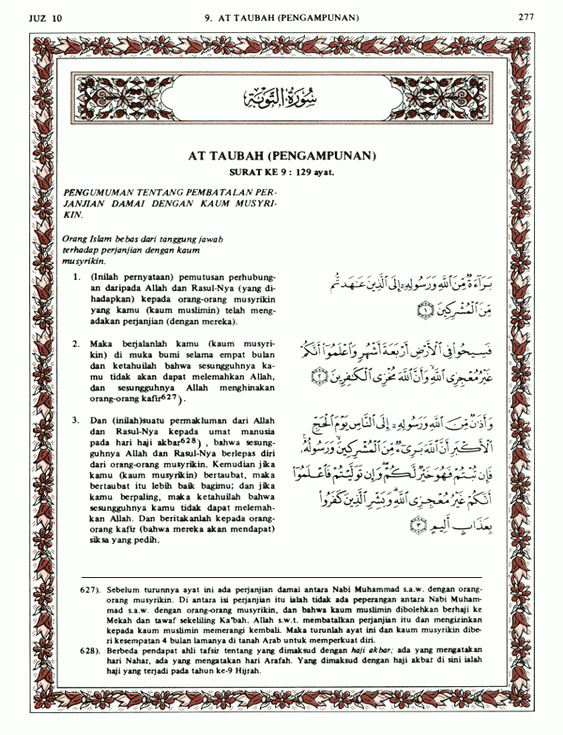 JUZ 10
9. AT TAUBAH (PENGAMPUNAN)
277
سُورَةُ التَّوْبَةِ
AT TAUBAH (PENGAMPUNAN)
SURAT KE 9 : 129 ayat.
PENGUMUMAN TENTANG PEMBATALAN PER-
JANJIAN DAMAI DENGAN KAUM MUSYRI-
KIN.
Orang Islam bebas dari tanggung jawab
terhadap perjanjian dengan kaum
musyrikin.
1. (Inilah pernyataan) pemutusan perhubung-
an daripada Allah dan Rasul-Nya (yang di-
hadapkan) kepada orang-orang musyrikin
yang kamu (kaum muslimin) telah meng-
adakan perjanjian (dengan mereka).
بَرَآءَةٌ مِّنَ ٱللَّهِ وَرَسُولِهِۦٓ إِلَى ٱلَّذِينَ عَٰهَدتُّم
مِّنَ ٱلْمُشْرِكِينَ ۝١
2. Maka berjalanlah kamu (kaum musyri-
kin) di muka bumi selama empat bulan
dan ketahuilah bahwa sesungguhnya ka-
mu tidak akan dapat melemahkan Allah,
dan sesungguhnya Allah menghinakan
orang-orang kafir627).
فَسِيحُوا۟ فِى ٱلْأَرْضِ أَرْبَعَةَ أَشْهُرٍ وَٱعْلَمُوٓا۟ أَنَّكُمْ
غَيْرُ مُعْجِزِى ٱللَّهِ وَأَنَّ ٱللَّهَ مُخْزِى ٱلْكَٰفِرِينَ ۝٢
3. Dan (inilah)suatu permakluman dari Allah
dan Rasul-Nya kepada umat manusia
pada hari haji akbar628) , bahwa sesung-
guhnya Allah dan Rasul-Nya berlepas diri
dari orang-orang musyrikin. Kemudian jika
kamu (kaum musyrikin) bertaubat, maka
bertaubat itu lebih baik bagimu; dan jika
kamu berpaling, maka ketahuilah bahwa
sesungguhnya kamu tidak dapat melemah-
kan Allah. Dan beritakanlah kepada orang-
orang kafir (bahwa mereka akan mendapat)
siksa yang pedih.
وَأَذَٰنٌ مِّنَ ٱللَّهِ وَرَسُولِهِۦٓ إِلَى ٱلنَّاسِ يَوْمَ ٱلْحَجِّ
ٱلْأَكْبَرِ أَنَّ ٱللَّهَ بَرِىٓءٌ مِّنَ ٱلْمُشْرِكِينَ وَرَسُولُهُۥ
فَإِن تُبْتُمْ فَهُوَ خَيْرٌ لَّكُمْ وَإِن تَوَلَّيْتُمْ فَٱعْلَمُوٓا۟
أَنَّكُمْ غَيْرُ مُعْجِزِى ٱللَّهِ وَبَشِّرِ ٱلَّذِينَ كَفَرُوا۟
بِعَذَابٍ أَلِيمٍ ۝٣
627). Sebelum turunnya ayat ini ada perjanjian damai antara Nabi Muhammad s.a.w. dengan orang-
orang musyrikin. Di antara isi perjanjian itu ialah tidak ada peperangan antara Nabi Muham-
mad s.a.w. dengan orang-orang musyrikin, dan bahwa kaum muslimin dibolehkan berhaji ke
Mekah dan tawaf sekeliling Ka'bah. Allah s.w.t. membatalkan perjanjian itu dan mengizinkan
kepada kaum muslimin memerangi kembali. Maka turunlah ayat ini dan kaum musyrikin dibe-
ri kesempatan 4 bulan lamanya di tanah Arab untuk memperkuat diri.
628). Berbeda pendapat ahli tafsir tentang yang dimaksud dengan haji akbar; ada yang mengatakan
hari Nahar, ada yang mengatakan hari Arafah. Yang dimaksud dengan haji akbar di sini ialah
haji yang terjadi pada tahun ke-9 Hijrah.